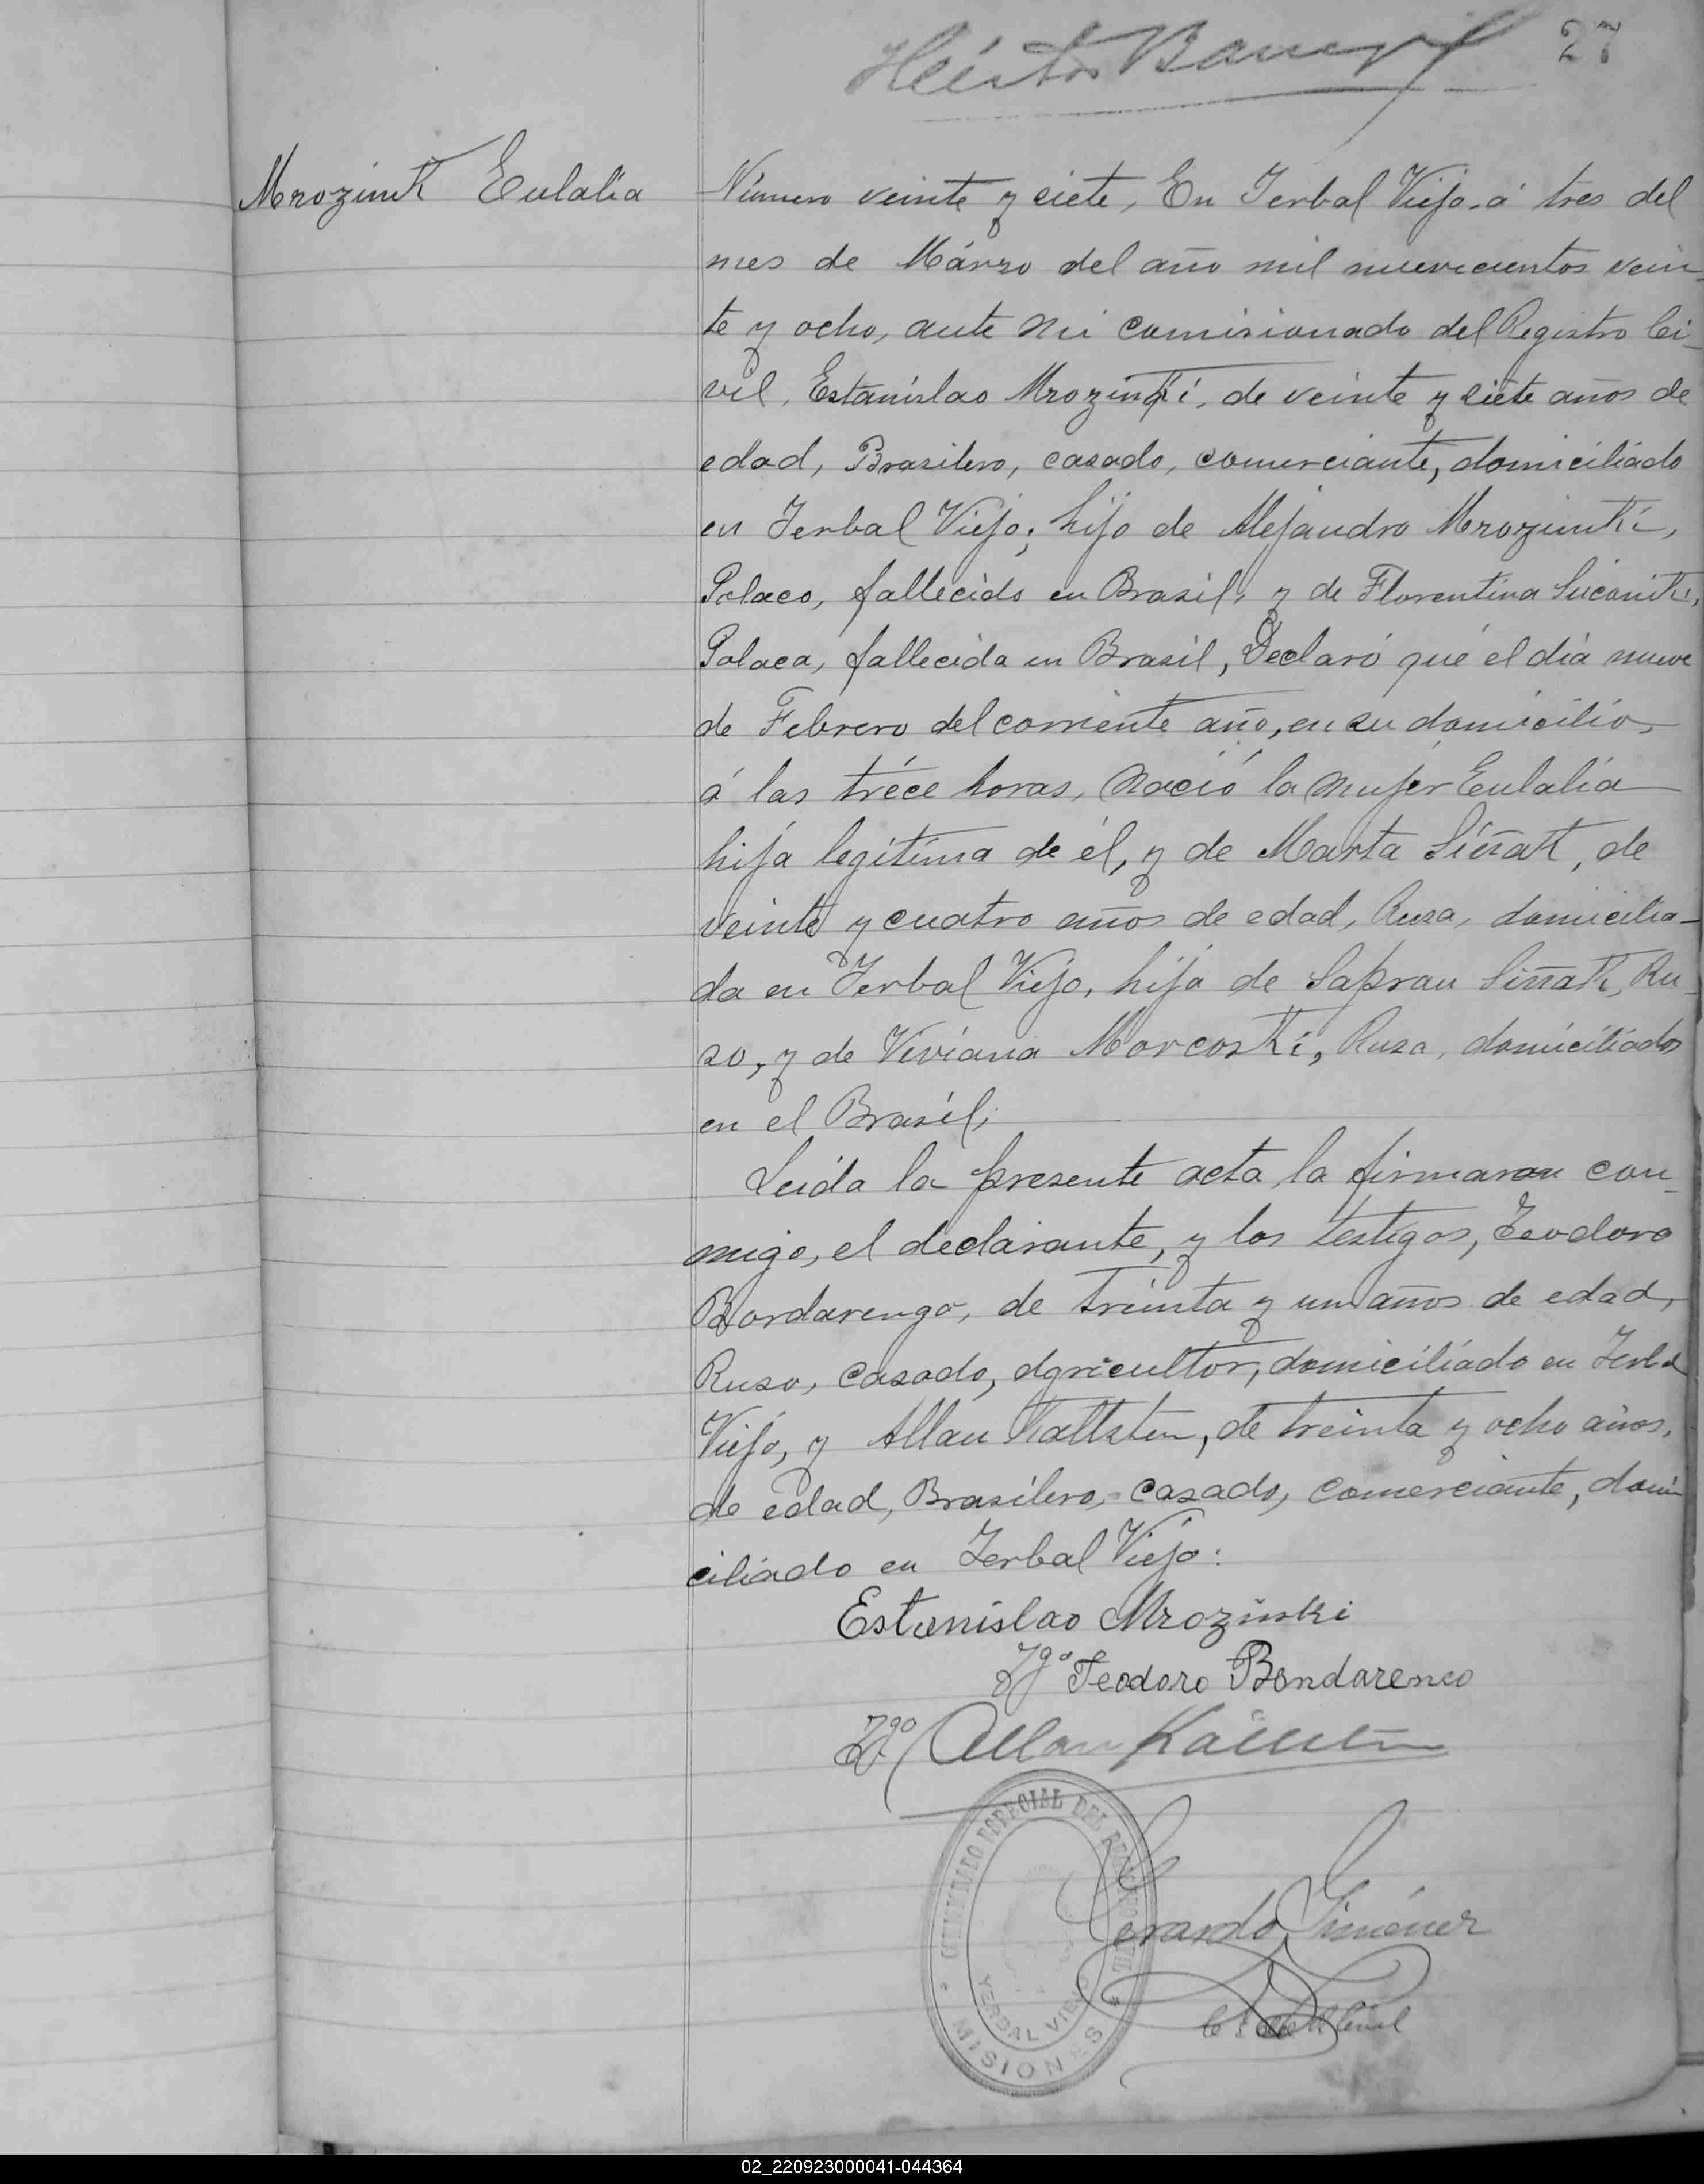 Héctor 27
Mrozinik Eulalia
Número veinte y siete, En Yerbal Viejo á tres del
mes de Márzo del año mil nuevecientos vein-
te y ocho, ante mi comisionado del Registro Ci-
vil, Estanislao Mrozinki, de veinte y siete años de
edad, Brasilero, casado, comerciante, domiciliado
en Yerbal Viejo; hijo de Alejandro Mrozinki,
Polaco, fallecido en Brasil, y de Florentina
Polaca, fallecida en Brasil, Declaró que el día nueve
de Febrero del corriente año, en su domicilio,
á las tréce horas, Nació la mujer Eulalia
hija legítima de él, y de Marta Siñak, de
veinte y cuatro años de edad, Rusa, domicilia-
da en Yerbal Viejo, hija de Sapran Siñak, Ru-
so, y de Viviana Morcoski, Rusa, domiciliados
en el Brasil;
Leida la presente acta, la firmaron con-
migo, el declarante, y los testigos, Teodoro
Bordarengo, de treinta y un años de edad,
Ruso, casado, agricultor, domiciliado en Yerbal
Viejo, y Allan de treinta y ocho años,
de edad, Brasilero, casado, comerciante, domi
ciliado en Yerbal Viejo:
Estanislao Mrozinski
Tgo Teodoro Bondarenco
Tgo Allan
COMISARIADO ESPECIAL DEL REGISTRO CIVIL
YERBAL VIEJO
MISIONES
Gerardo Giménez
02_220923000041-044364